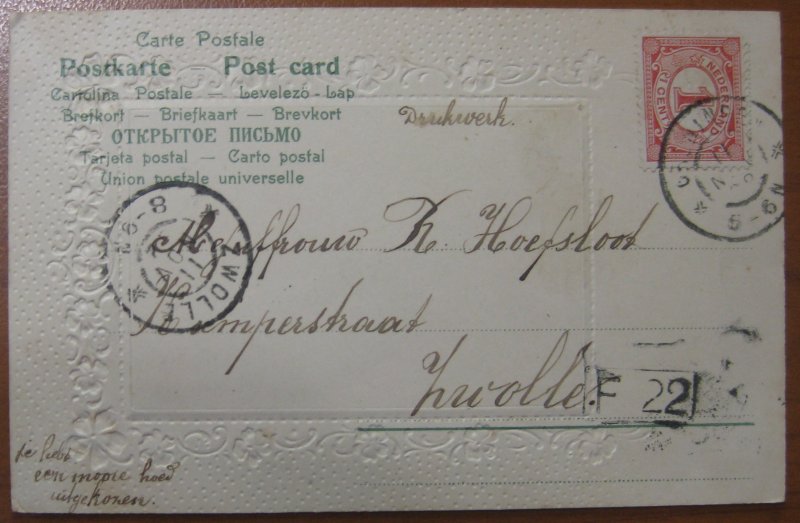 Carte Postale
Postkarte Post card
Cartolina Postale — Levelező-Lap
Brefkort — Briefkaart — Brevkort
ОТКРЫТОЕ ПИСЬМО
Tarjeta postal — Carto postal
Union postale universelle
Drukwerk.
NEDERLAND
1
CENT
N 9-9
N 6-8
ZWOLLE
Mejuffrouw R. Hoefsloot
Kamperstraat
Zwolle.
F 22
Je hebt
een mopie hoed
uitgekozen.